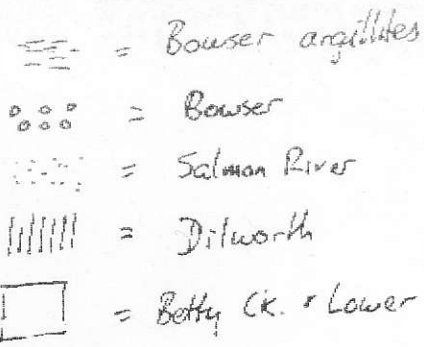 = Bowser argillites
= Bowser
= Salmon River
= Dilworth
= Betty Ck. & Lower